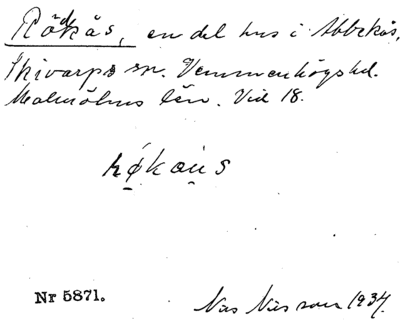 Rödkås, en del hus i Abbekås,
Skivarps sn. Vemmenhögs hd.
Malmöhus län. Vid 18.
Nr 5871.
Nils Nilsson 1937.